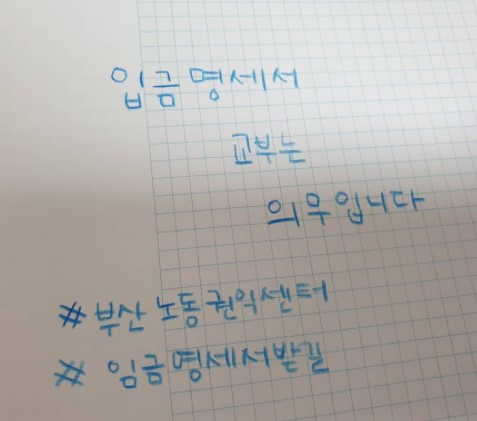 입금 명세서
교부는
의무입니다
#부산노동권익센터
# 임금명세서받길